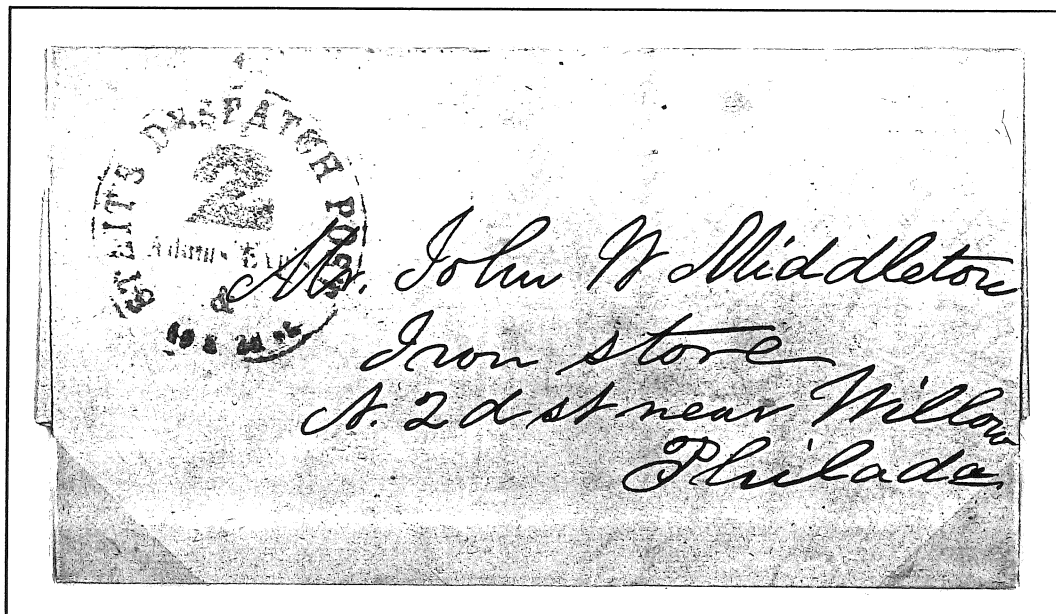 STEITS DESPATCH POST
2
Adams Expr
&
Mr. John W Middleton
Iron store
N. 2d st near Willow
Philada